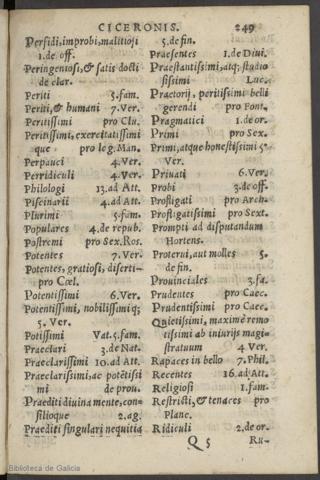 CICERONIS. 249
Perfidi, improbi, malitioſi
1.de off.
Peringenioſi, & ſatis docti
de clar.
Periti 5.fam.
Periti, & humani 7.Ver.
Peritiſſimi pro Clu.
Peritiſſimi, exercitatiſſimi
que pro leg.Man.
Perpauci 4.Ver.
Perridiculi 4.Ver.
Philologi 13.ad Att.
Piſcinarii 4.ad Att.
Plurimi 5.fam.
Populares 4.de repub.
Poſtremi pro Sex.Ros.
Potentes 7.Ver.
Potentes, gratioſi, diſerti-
pro Cœl.
Potentiſſimi 6.Ver.
Potentiſſimi, nobiliſſimi q;
5. Ver.
Potiſſimi Vat.5.fam.
Præclari 3.de Nat.
Præclariſſimi 10.ad Att.
Præclariſſimi, ac potētiſſi
mi de prou.
Præditi diuina mente, con-
ſilioque 2.ag.
Præditi ſingulari nequitia
5.de fin.
Præſentes 1.de Diui.
Præſtantiſſimi, atq; ſtudio
ſiſſimi Luc.
Prætorij, peritiſſimi belli
gerendi pro Font.
Pragmatici 1.de or.
Primi pro Sex.
Primi, atque honeſtiſſimi 5.
Ver.
Priuati 6.Ver.
Probi 3.de off.
Profligati pro Arch.
Profligatiſſimi pro Sext.
Prompti ad diſputandum
Hortens.
Proterui, aut molles 5.
de fin.
Prouinciales 3.fa.
Prudentes pro Cæc.
Prudentiſſimi pro Cæc.
Quietiſſimi, maximè remo
tiſſimi ab iniurijs magi-
ſtratuum 4 Ver.
Rapaces in bello 7.Phil.
Recentes 16.ad Att.
Religioſi 1.fam.
Reſtricti, & tenaces pro
Planc.
Ridiculi 2.de or.
Q 5 Ru-
Biblioteca de Galicia